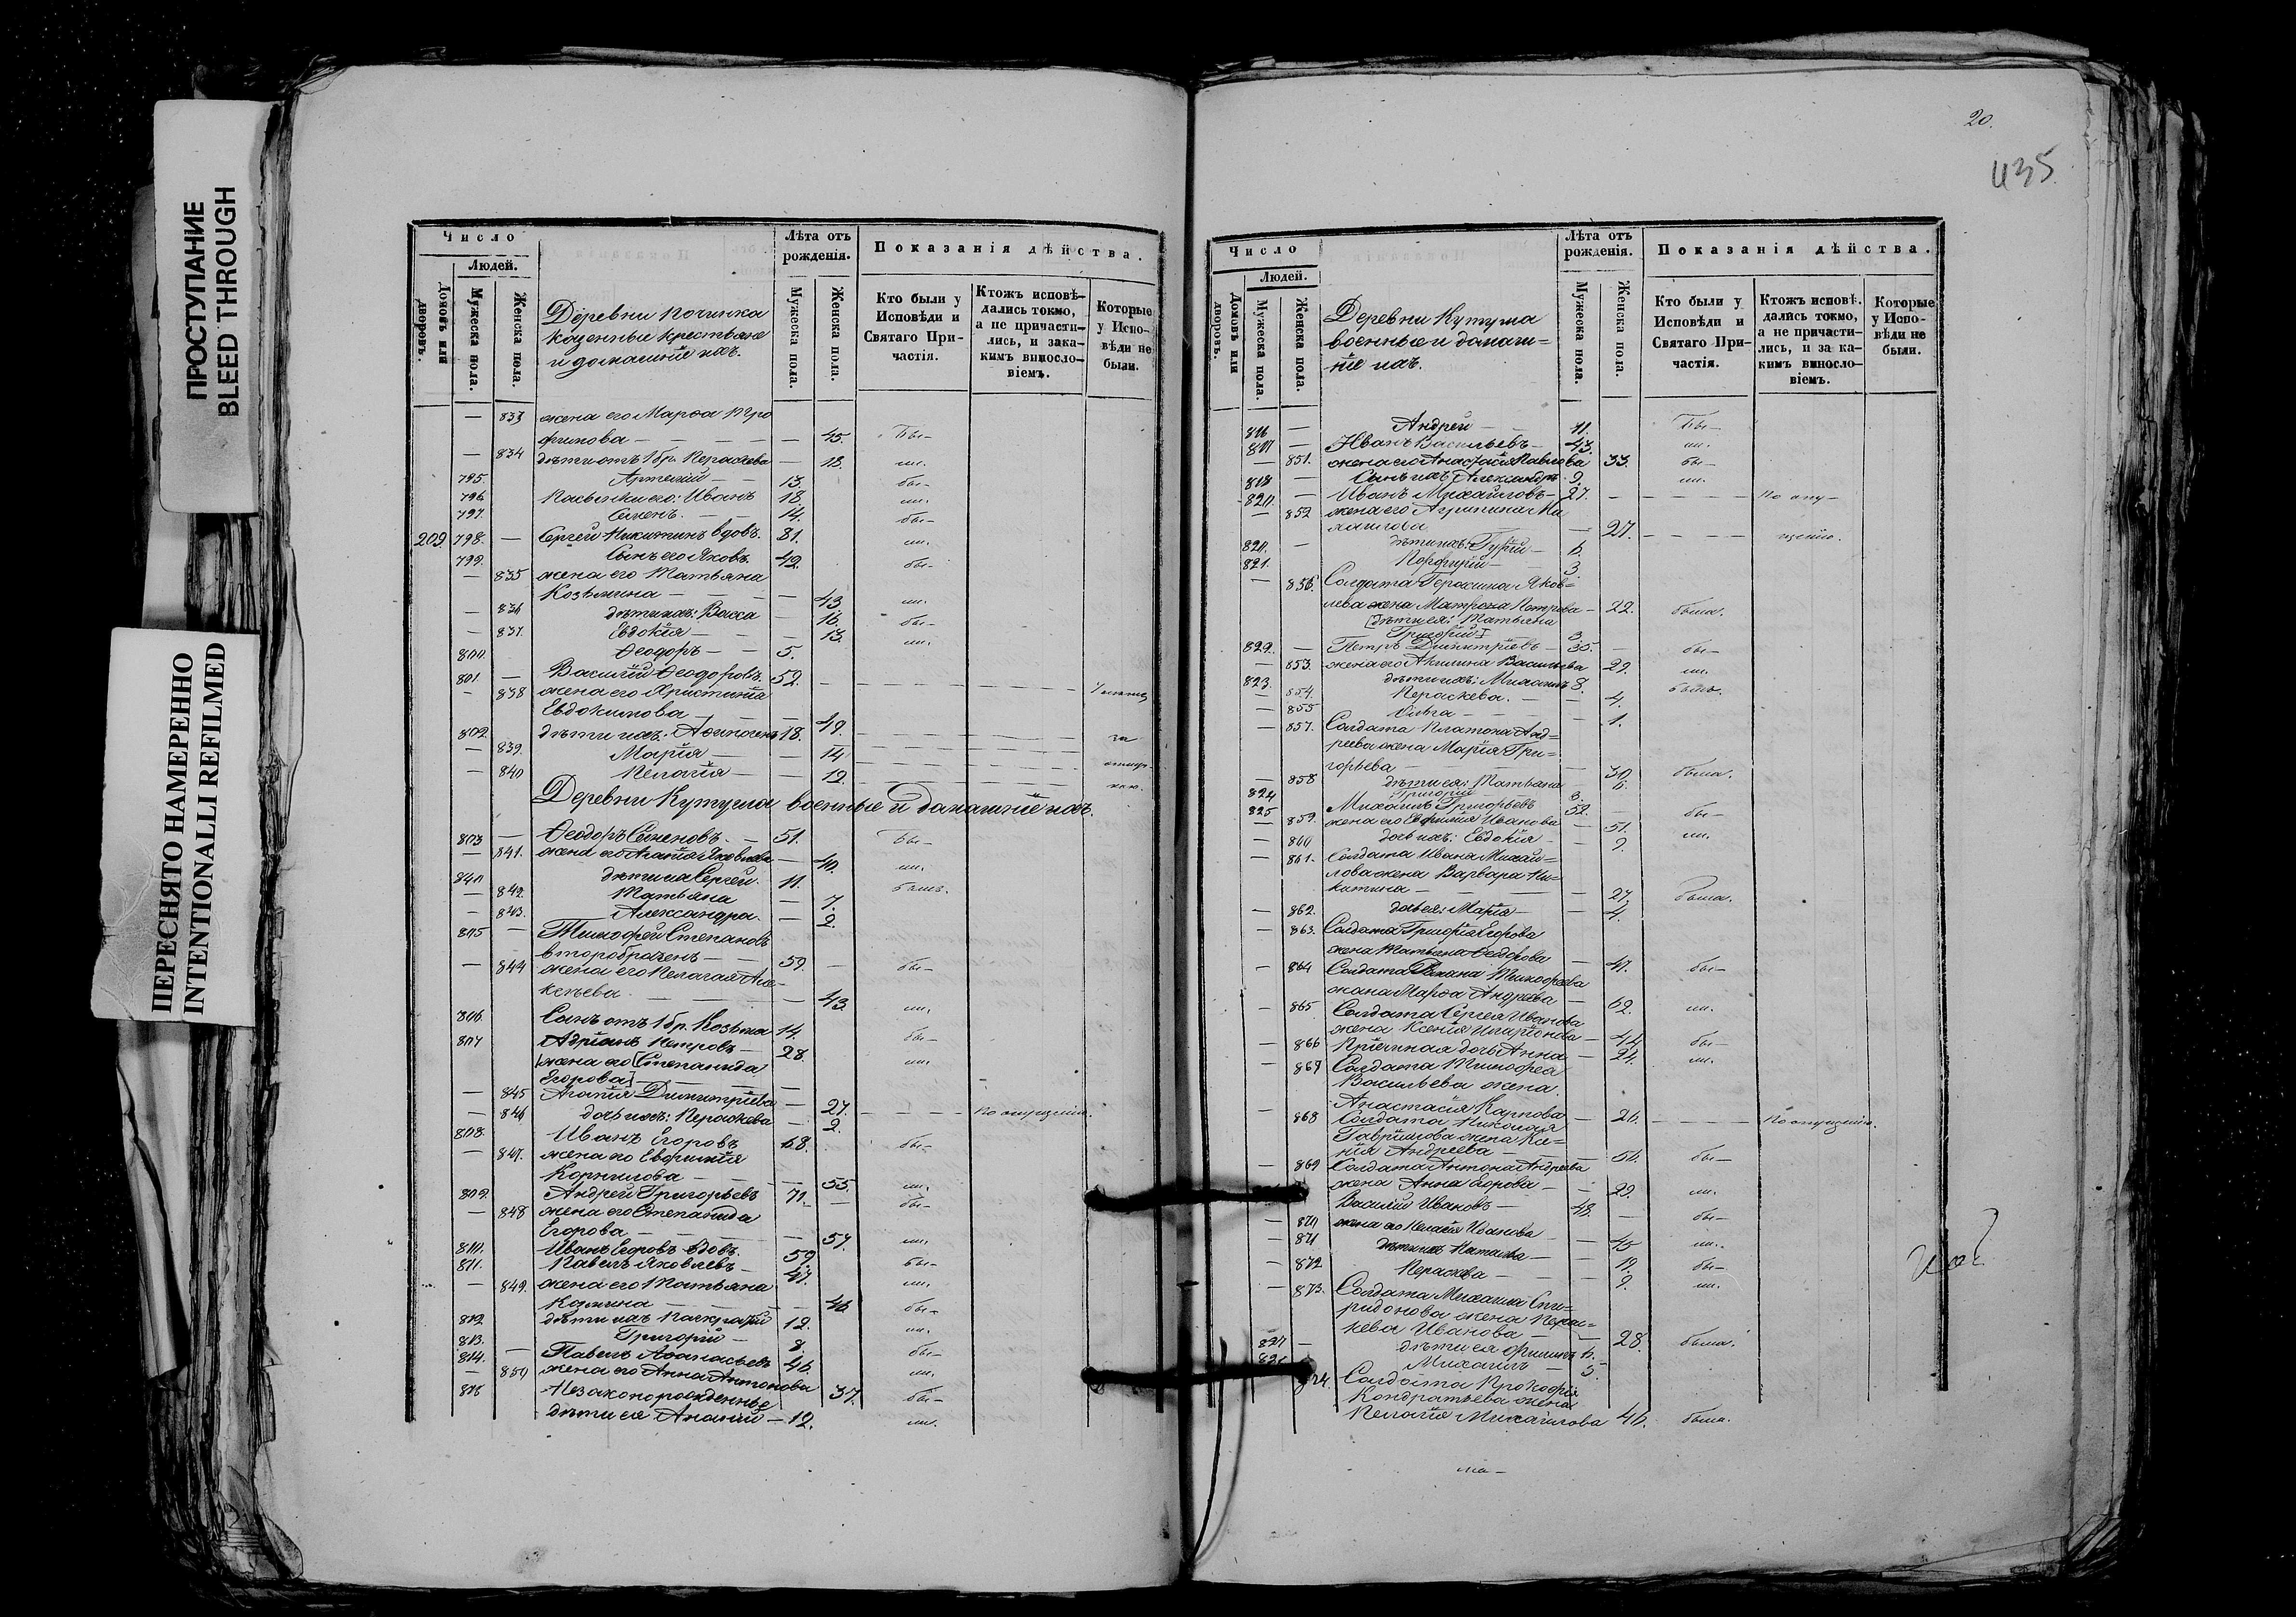 ПРОСТУПАНИЕ
BLEED THROUGH
ПЕРЕСНЯТО НАМЕРЕННО
INTENTIONALLI REFILMED
Число
Людей.
Домовъ или дворовъ.
Мужеска пола.
Женска пола.
Деревни Починка
казенные крестьяне
и домашніе ихъ.
Лѣта отъ рожденія.
Мужеска пола.
Женска пола.
Показанія дѣйства.
Кто были у Исповѣди и Святаго Причастія.
Ктожъ исповѣдались токмо, а не причастились, и закакимъ винословіемъ.
Которые у Исповѣди не были.
— 833 жена его Марѳа
— — 45. бы–
— 834 дѣти отъ 1 бр. Параскева — 18. ли.
795 Артемій — 13. бы–
796 Иванъ 18. ли.
797. Семенъ. — 14. бы–
209. 798. — Сергей Никитинъ вдовъ. 81. ли.
799. Сынъ его Яковъ. 42. бы–
— 835 жена его Татьяна
Козьмина — — 43. ли.
— 836 дѣти ихъ: Васса — 16. бы–
— 837. Евдокія — — 13. ли.
800. Ѳеодоръ — 5.
801 — Василій Ѳеодоровъ. 52.
— 838 жена его Христинія
Евдокимова — 49.
802. дѣти ихъ: 18. за
— 839. Марія — — 14
— 840 Пелагія — — 12.
Деревни Кутуша военные и домашніе ихъ.
803 — Ѳеодоръ Семеновъ. — 51. Бы–
— 841. жена его Агафія Яковлева — 40. ли.
804 дѣти ихъ Сергей. 11. былъ.
— 842. Татьяна — 7.
— 843. Александра. — 2.
805 — Тимофей Степановъ
второбраченъ — 59. бы–
— 844 жена его Пелагея
— 43 ли.
806. Сынъ отъ 1 бр. Козьма 14. бы–
807 Адріанъ Петровъ — 28. ли.
[жена его Степанида
Егорова] —
— 845 Агафія Димитріева — 27. — — — По опущенію.
— 846 дочь ихъ: Параскева — 2.
808. Иванъ Егоровъ 68. бы–
— 847. жена его Евфимія
Корнилова — — 55. ли.
809. Андрей Григорьевъ 71. — бы–
— 848 жена его Степанида
Егорова — — 57. ли.
810. Иванъ Егоровъ вдовъ. 59. бы–
811. Павелъ Яковлевъ — 47. ли.
— 849. жена его Татьяна
— 46 бы–
812. дѣти ихъ 12. ли.
813. Григорій — 8.
814. — Павелъ Аѳанасьевъ 46. бы–
— 850 жена его Анна Антонова 37. ли.
815 Незаконорожденные бы–
дѣти ея Ананій — 12. ли.
20.
435
Число
Людей.
Домовъ или дворовъ.
Мужеска пола.
Женска пола.
Деревни Кутуша
военные и домаш=
ніе ихъ.
Лѣта отъ рожденія.
Мужеска пола.
Женска пола.
Показанія дѣйства.
Кто были у Исповѣди и Святаго Причастія.
Ктожъ исповѣдались токмо, а не причастились, и за какимъ винословіемъ.
Которые у Исповѣди не были.
816 — Андрей 11. Бы–
817 — Иванъ Васильевъ — 43. ли.
— 851. жена его Анастасія Павлова 33. бы–
818 — Сынъ ихъ Александръ 9. ли.
820. — Иванъ Михайловъ — 27. — — — По опу–
— 852 жена его Агрипина Ми
хаилова — 27. — — — щенію.
820. — дѣти ихъ: Гурій — 6.
821. Порфирій — 3
— 856. Солдата Герасима Яков=
лева жена Матрона Петрова — 22. была.
[дѣти ея: Татьяна
Григорій] 3.
822. — Петръ Димитріевъ — 35. — бы–
— 853. жена его Акилина Васильева 29. ли.
823. дѣти ихъ: Михаилъ 8. былъ.
— 854. Параскева. — — 4.
— 855 — — 1.
— 857. Солдата Платона Анд=
реева жена Марія Гри=
горьева — — 30. была.
— 858 дѣти ея: Татьяна 6.
824 Григорій 3.
825 Михаилъ Григорьевъ 52. бы–
— 859. жена его Евфимія Иванова — 51. ли.
— 860 дочь ихъ: Евдокія — 9.
— 861. Солдата Ивана Михай=
лова жена Варвара Ни=
китина — — 27. была.
— 862. дочь ея: Марія — — 4.
— 863. Солдата Григорія Егорова
жена Татьяна Ѳедорова — 41. бы–
— 864 Солдата Тимофеева
жена Марѳа Андреева — 62. ли.
— 865 Солдата Сергея Иванова
жена Ксенія Иларіонова — 44 бы–
— 866 дочь Анна — 24. ли.
— 867 Солдата Тимофея
Васильева жена
Анастасія Карпова — 26. — — — По опущенію.
— 868 Солдата Николая
Гавриилова жена Ксе=
нія Андреева — — 56. бы–
— 869 Солдата Антона Андреева
жена Анна Егорова — — 29. ли.
Василій Ивановъ — 48. — бы–
— 870 жена его Пелагія Иванова — 45 ли.
— 871 дѣти ихъ Наталья — — 19. бы–
— 872 Параскева — — 9. ли.
— 873. Солдата Михаила Спи=
ридонова жена Парас=
кева Иванова — — 28. была.
— дѣти ея Филиппъ 6.
Михаилъ — 5
874. Солдата Прокофія
Кондратьева жена
Пелагія Михайлова 46. была.